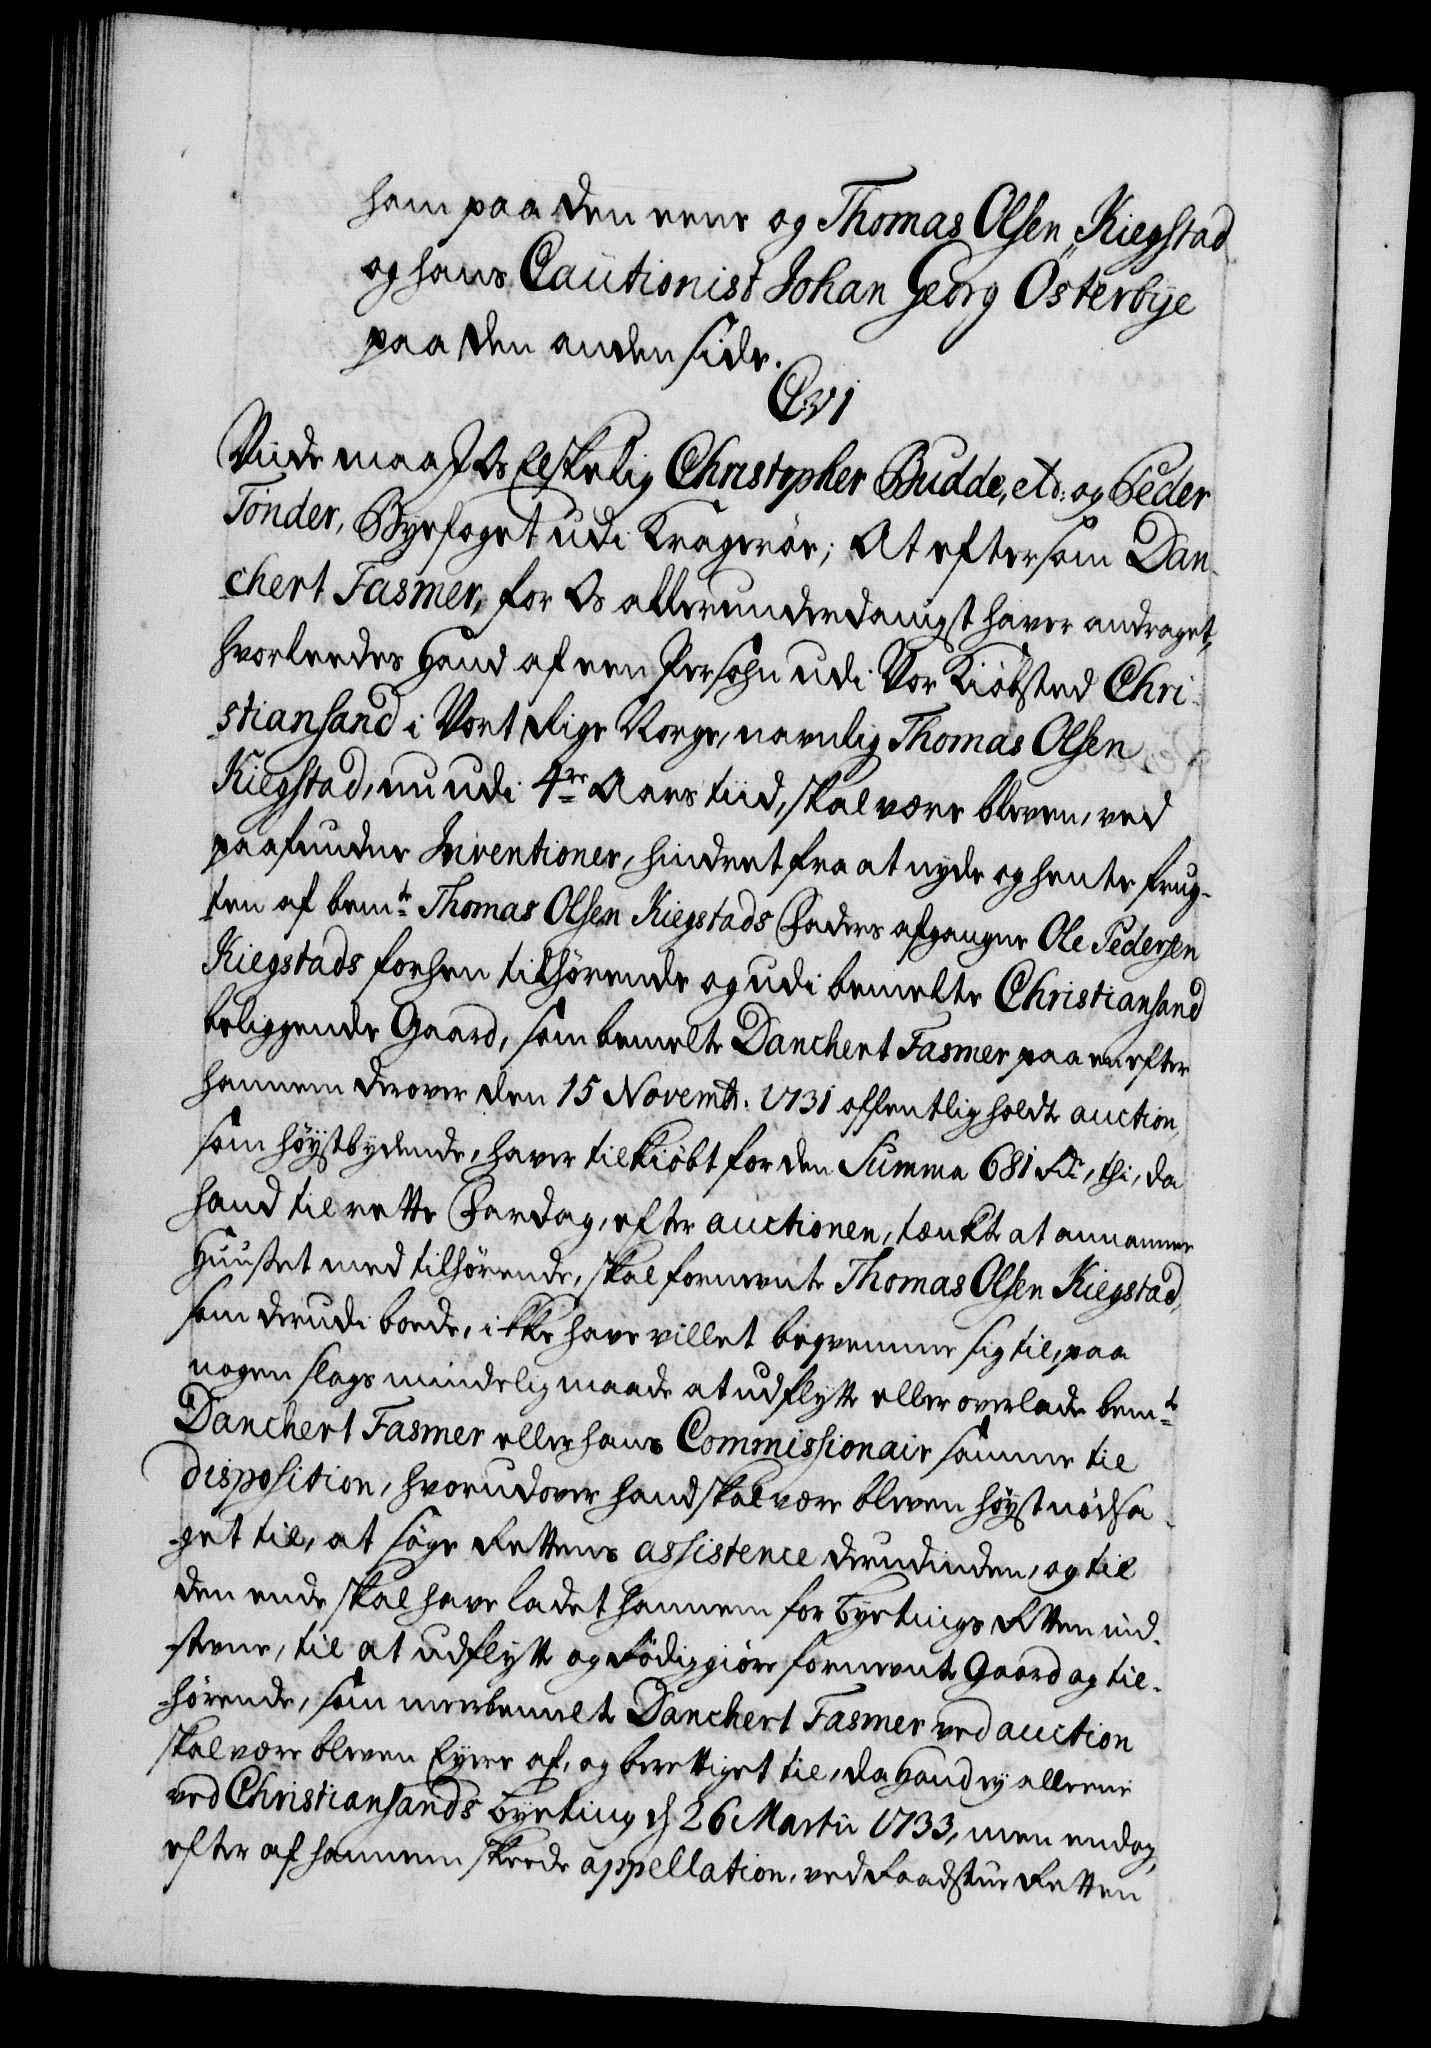 ham paa den eene og Thomas Olsen Kiegstad
og hans Cautionist Johan Georg Österbye
paa den anden side.
CVI
Viide maa I Os Elskelig Christopher Budde, etc: og Peder
Tönder, Byefoget udi Krageröe; At eftersom Dan-
chert Fasmer, for Os allerunderdanigst haver andraget,
hvorleedes Hand af een Persohn udi Vor Kiöbsted Chri-
stiansand i Vort Rige Norge, navnlig Thomas Olsen
Kiegstad, nu udi 4re Aars tiid, skal være bleven, ved
paafundne Inventioner, hindret fra at nyde og hente frug-
ten af bemte Thomas Olsen Kiegstads Faders afgangne Ole Pedersen
Kiegstads forhen tilhörende og udi bemelte Christiansand
beliggende Gaard, som bemelte Danchert Fasmer paa en efter
hannem derover den 15 Novembr. 1731 offentlig holdte auction,
som höystbydende, haver tilkiöbt for den Summa 681 Rdr, thi, da
hand til rette Fardag, efter auctionen, tænkte at annamme
Huuset med tilhörende, skal fornevnte Thomas Olsen Kiegstad,
som derudi boede, ikke have villet beqvemme sig til, paa
nogen slags mindelig maade at udflytte eller overlade bemte
Danchert Fasmer eller hans Commissionair samme til
disposition, hvorudover hand skal være bleven höyst nödsa-
get til, at söge Rettens assistence derudinden, og til
den ende skal have ladet hannem for Byetings Retten ind-
stevne, til at udflytte og Rödiggiöre fornevnte Gaard og til-
hörende, som meerbemelte Danchert Fasmer ved auction
skal være bleven Eyere af, og berettiget til, da Hand ey alleene
ved Christiansands Byeting d 26 Martii 1733, men endog,
efter af hannem skeede appellation, ved Raadstue Retten